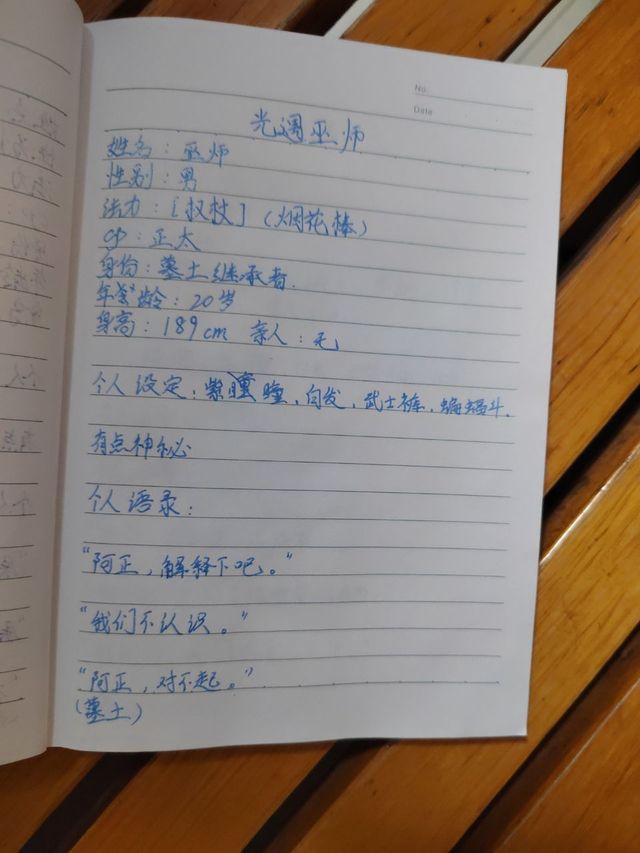 No.
Date
光遇巫师
姓名：巫师
性别：男
法力：[权杖]（烟花棒）
cp：正太
身份：墓土继承者.
年龄：20岁
身高：189cm 亲人：无
个人设定：紫瞳，白发，武士裤，蝙蝠斗.
有点神秘
个人语录：
“阿正，解释下吧。”
“我们不认识。”
“阿正，对不起。”
（墓土）